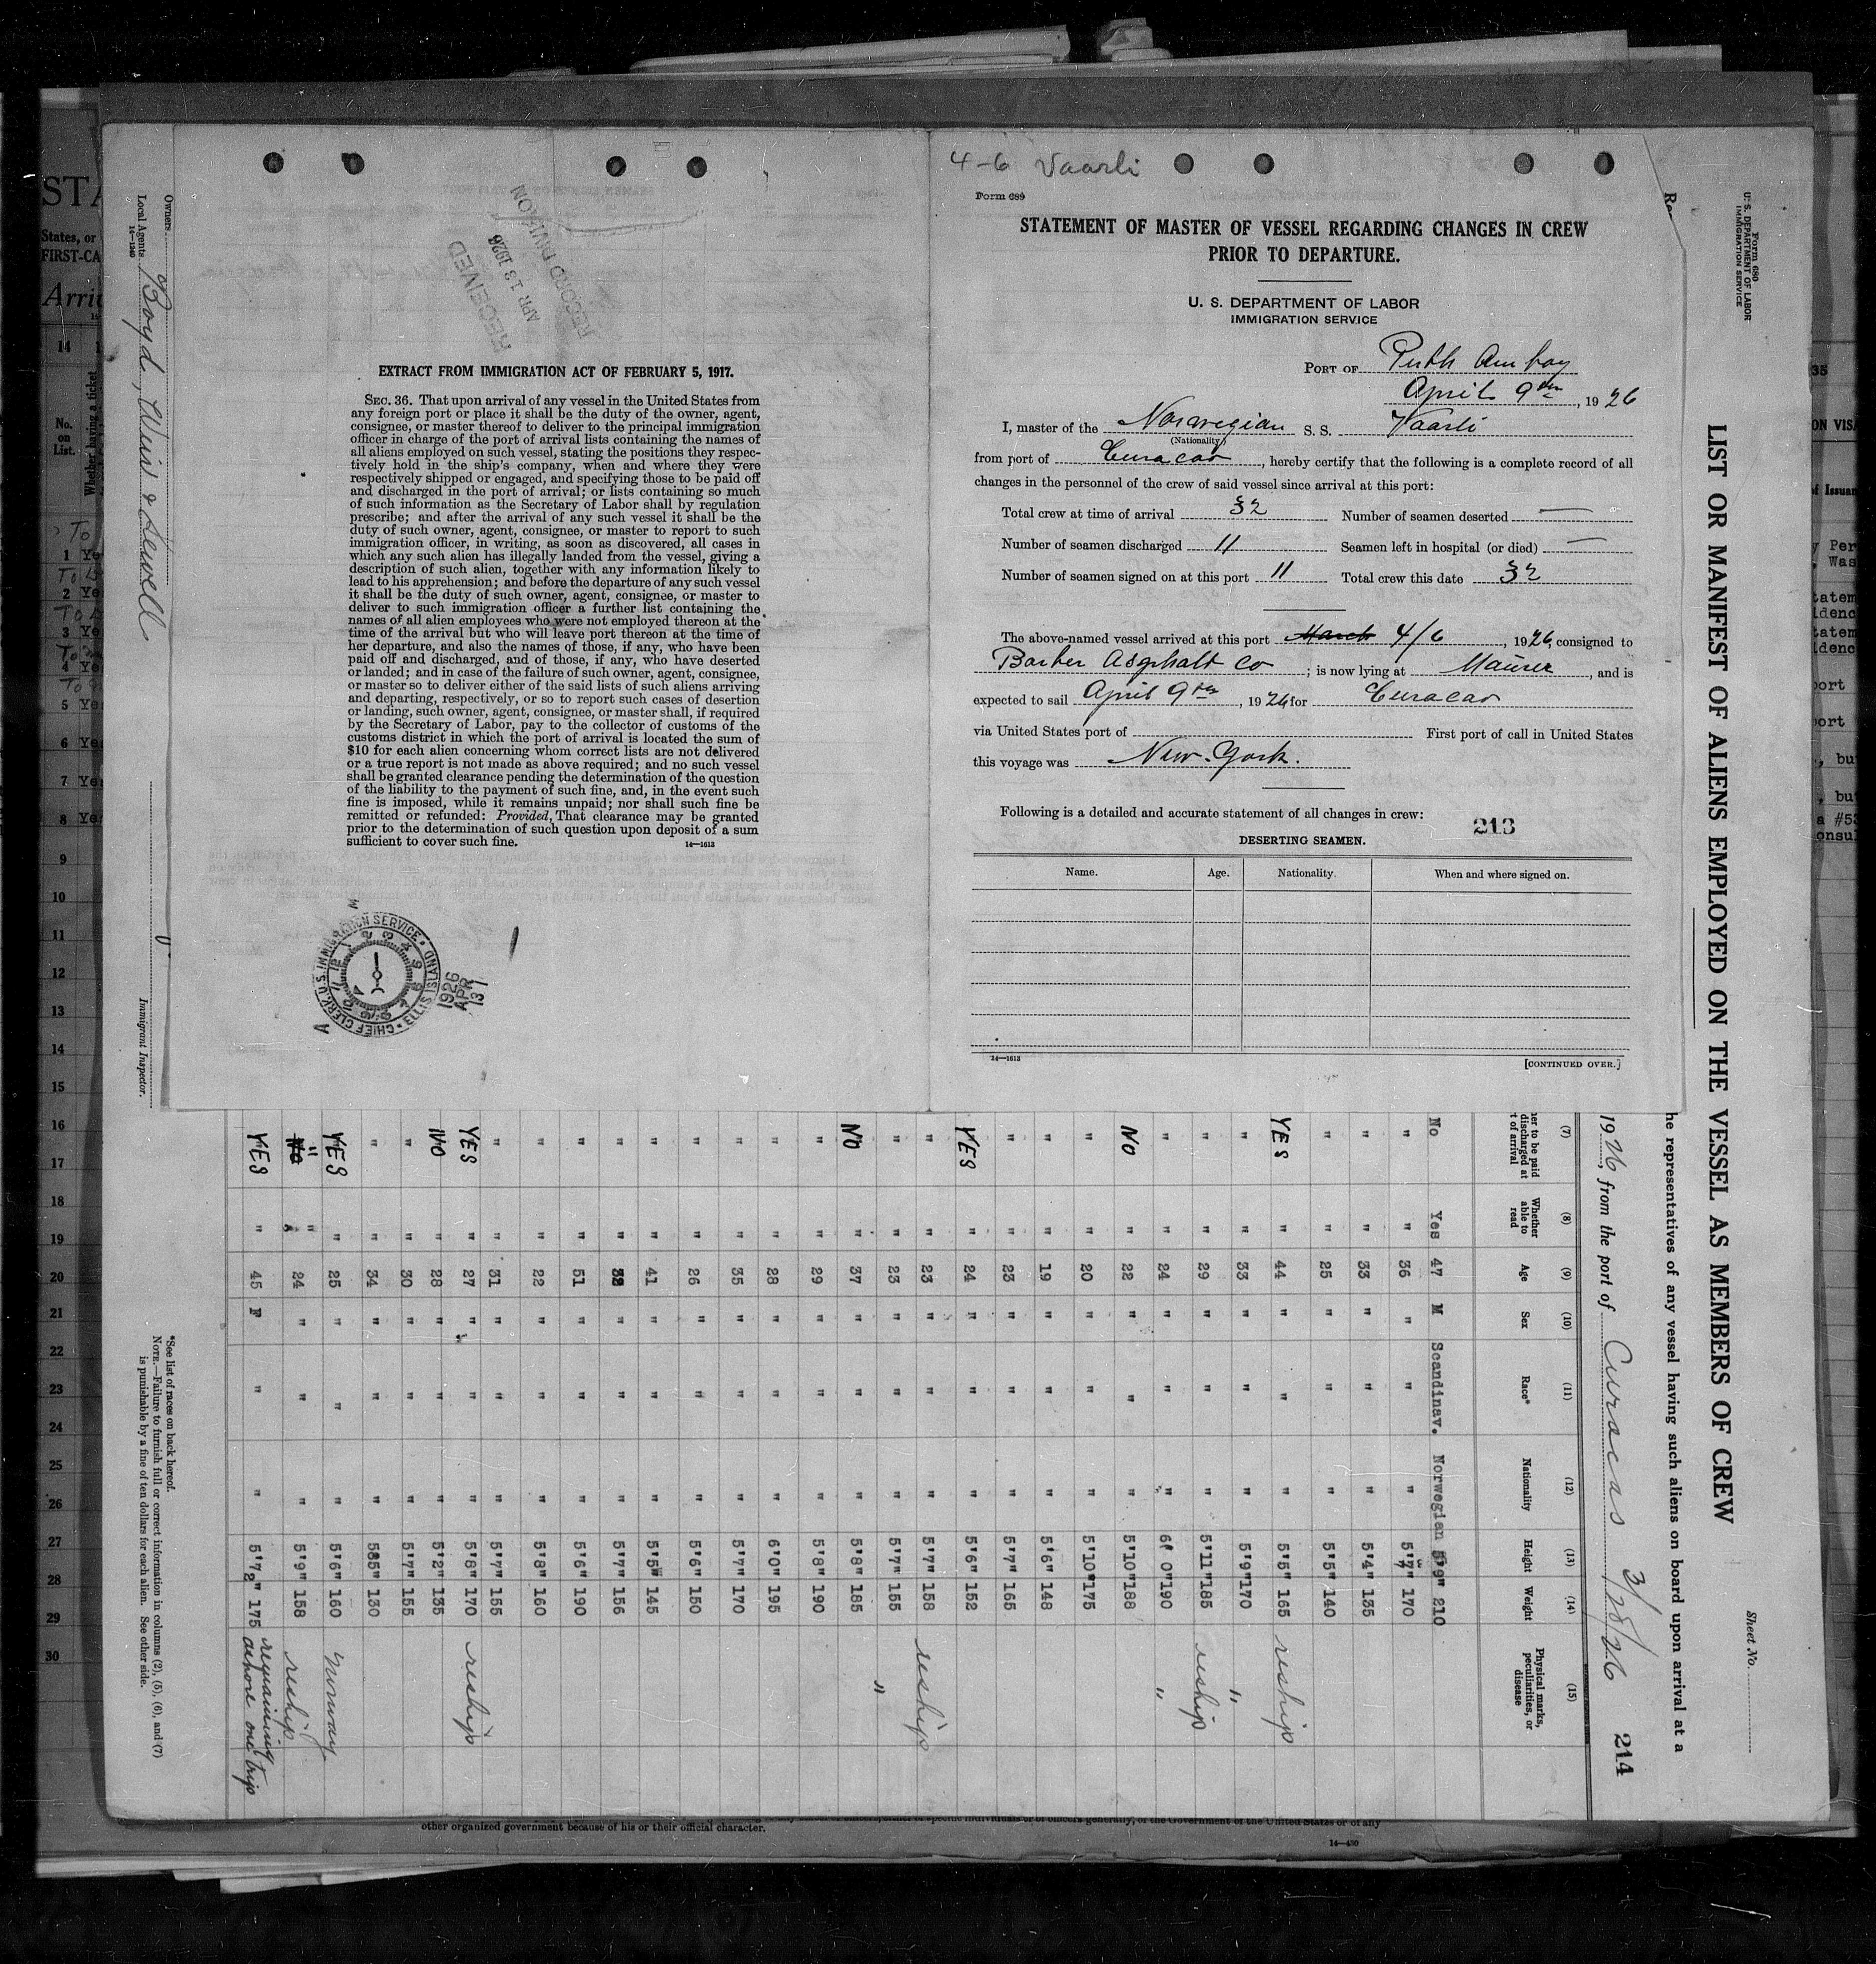 4-6 Vaarli
Form 689
STATEMENT OF MASTER OF VESSEL REGARDING CHANGES IN CREW
PRIOR TO DEPARTURE.
U. S. DEPARTMENT OF LABOR
IMMIGRATION SERVICE
PORT OF Perth Amboy
April 9th, 1926
I, master of the Norwegian S. S. Vaarli
(Nationality)
from port of Curacao, hereby certify that the following is a complete record of all
changes in the personnel of the crew of said vessel since arrival at this port:
Total crew at time of arrival 32 Number of seamen deserted —
Number of seamen discharged 11 Seamen left in hospital (or died) —
Number of seamen signed on at this port 11 Total crew this date 32
The above-named vessel arrived at this port March 4/6, 1926, consigned to
Barber Asphalt Co; is now lying at Maurer, and is
expected to sail April 9th, 1926 for Curacao
via United States port of First port of call in United States
this voyage was New York.
Following is a detailed and accurate statement of all changes in crew:
213
DESERTING SEAMEN.
Name. Age. Nationality. When and where signed on.
14—1613
[CONTINUED OVER.]
RECEIVED
APR 13 1926
RECORD DIVISION
EXTRACT FROM IMMIGRATION ACT OF FEBRUARY 5, 1917.
SEC. 36. That upon arrival of any vessel in the United States from
any foreign port or place it shall be the duty of the owner, agent,
consignee, or master thereof to deliver to the principal immigration
officer in charge of the port of arrival lists containing the names of
all aliens employed on such vessel, stating the positions they respec-
tively hold in the ship's company, when and where they were
respectively shipped or engaged, and specifying those to be paid off
and discharged in the port of arrival; or lists containing so much
of such information as the Secretary of Labor shall by regulation
prescribe; and after the arrival of any such vessel it shall be the
duty of such owner, agent, consignee, or master to report to such
immigration officer, in writing, as soon as discovered, all cases in
which any such alien has illegally landed from the vessel, giving a
description of such alien, together with any information likely to
lead to his apprehension; and before the departure of any such vessel
it shall be the duty of such owner, agent, consignee, or master to
deliver to such immigration officer a further list containing the
names of all alien employees who were not employed thereon at the
time of the arrival but who will leave port thereon at the time of
her departure, and also the names of those, if any, who have been
paid off and discharged, and of those, if any, who have deserted
or landed; and in case of the failure of such owner, agent, consignee,
or master so to deliver either of the said lists of such aliens arriving
and departing, respectively, or so to report such cases of desertion
or landing, such owner, agent, consignee, or master shall, if required
by the Secretary of Labor, pay to the collector of customs of the
customs district in which the port of arrival is located the sum of
$10 for each alien concerning whom correct lists are not delivered
or a true report is not made as above required; and no such vessel
shall be granted clearance pending the determination of the question
of the liability to the payment of such fine, and, in the event such
fine is imposed, while it remains unpaid; nor shall such fine be
remitted or refunded: Provided, That clearance may be granted
prior to the determination of such question upon deposit of a sum
sufficient to cover such fine.
14—1613
CHIEF CLERK, U.S. IMMIGRATION SERVICE • ELLIS ISLAND
1926
APR
13
Form 680
U. S. DEPARTMENT OF LABOR
IMMIGRATION SERVICE
Sheet No.
LIST OR MANIFEST OF ALIENS EMPLOYED ON THE VESSEL AS MEMBERS OF CREW
he representatives of any vessel having such aliens on board upon arrival at a
1926, from the port of Curacas 3/28/26 214
(7) (8) (9) (10) (11) (12) (13) (14) (15)
her to be paid discharged at t of arrival Whether able to read Age Sex Race* Nationality Height Weight Physical marks, peculiarities, or disease
No Yes 47 M Scandinav. Norwegian 5'9" 210
" " 36 " " " 5'7" 170
" " 33 " " " 5'4" 135
" " 25 " " " 5'5" 140
YES " 44 " " " 5'5" 165 reship
" " 33 " " " 5'9" 170 "
" " 29 " " " 5'11" 185 reship
" " 24 " " " 6' 0" 190 "
NO " 22 " " " 5'10" 188
" " 20 " " " 5'10" 175
" " 19 " " " 5'6" 148
" " 23 " " " 5'7" 165
YES " 24 " " " 5'6" 152
" " 23 " " " 5'7" 158 reship
" " 23 " " " 5'7" 155 "
NO " 37 " " " 5'8" 185
" " 29 " " " 5'8" 190
" " 28 " " " 6'0" 195
" " 35 " " " 5'7" 170
" " 26 " " " 5'6" 150
" " 41 " " " 5'5" 145
" " " " " 5'7" 156
" " 51 " " " 5'6" 190
" " 22 " " " 5'8" 160
" " 31 " " " 5'7" 155
YES " 27 " " " 5'8" 170 reship
NO " 28 " " " 5'2" 135
" " 30 " " " 5'7" 155
" " 34 " " " 5'5" 130
YES " 25 " " " 5'6" 160 Norway
" " 24 " " " 5'9" 158 reship
YES " 45 F " " 5'7½" 175 remaining ashore one trip
*See list of races on back hereof.
NOTE.—Failure to furnish full or correct information in columns (2), (5), (6), and (7)
is punishable by a fine of ten dollars for each alien. See other side.
Owners
Local Agents Boyd, Weir & Sewell
14—1240
Immigrant Inspector.
STA
States, or
FIRST-CA
14
No. on List.
Whether having a ticket
1 Yes
2 Yes
3 Yes
4 Yes
5 Yes
6 Yes
7 Yes
8 Yes
9
10
11
12
13
14
15
16
17
18
19
20
21
22
23
24
25
26
27
28
29
30
other organized government because of his or their official character.
14—430